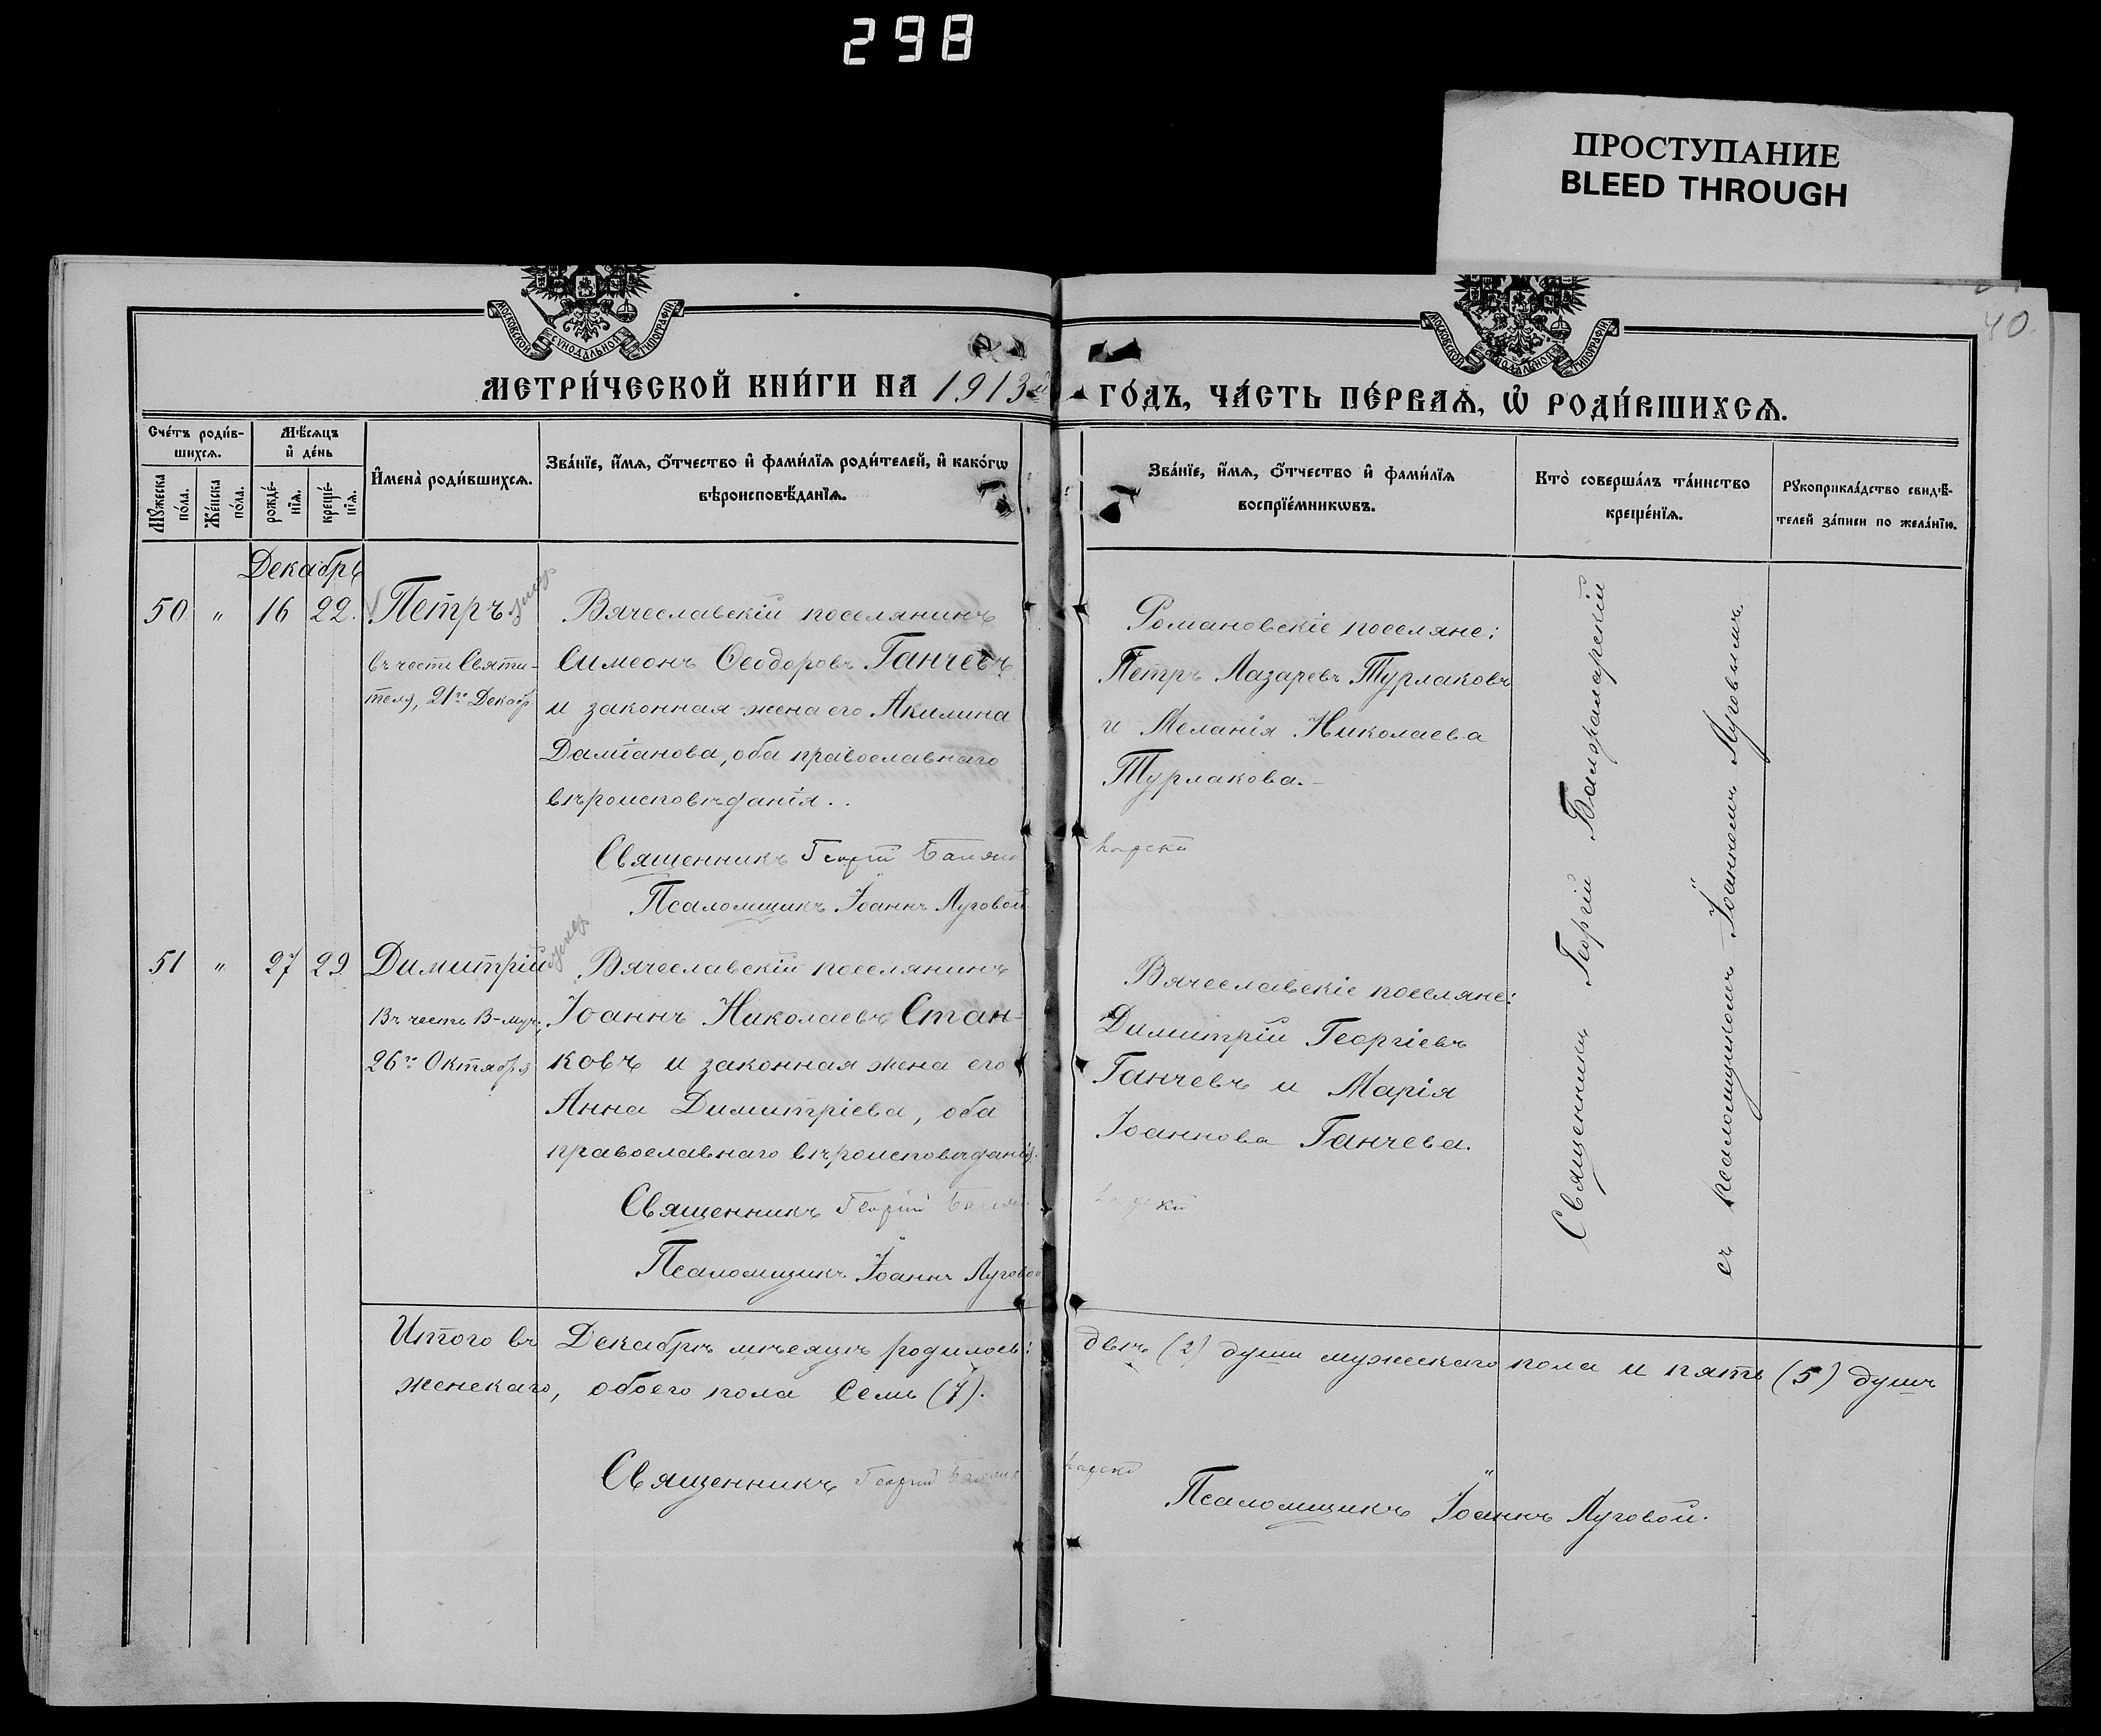 298
ПРОСТУПАНИЕ
BLEED THROUGH
40.
МОСКОВСКОЙ СѴНОДАЛЬНОЙ ТИПОГРАФІИ.
МОСКОВСКОЙ СѴНОДАЛЬНОЙ ТИПОГРАФІИ.
МЕТРИ́ЧЕСКОЙ КНИ́ГИ НА 1913й ГО́ДЪ, ЧА́СТЬ ПЕ́РВАѦ, Ѡ҆ РОДИ́ВШИХСѦ.
Сче́тъ роди́в-
шихсѧ.
Мѣ́сѧцъ
и҆ де́нь
Мꙋ́жеска
по́ла.
Же́нска
по́ла.
рожде́-
нїѧ.
креще́-
нїѧ.
И҆мена̀ роди́вшихсѧ.
Зва́нїе, и҆́мѧ, ѻ҆́тчество и҆ фами́лїѧ роди́телей, и҆ како́гѡ
вѣроисповѣ́данїѧ.
Зва́нїе, и҆́мѧ, ѻ҆́тчество и҆ фами́лїѧ
воспрїе́мникѡвъ.
Кто̀ соверша́лъ та́инство
креще́нїѧ.
Рꙋкоприкла́дство свидѣ́-
телей за́писи по жела́нїю.
Декабрь
50 " 16 22. Петръ умер
въ честь Святи-
теля, 21го Декабр.
Вячеславскій поселянинъ
Симеонъ Ѳеодоровъ Ганчевъ
и законная жена его Акилина
Даміанова, оба православнаго
вѣроисповѣданія..
Священникъ Георгій
Псаломщикъ Іоаннъ Луговой
Романовскіе поселяне:
Петръ Лазаревъ Турлаковъ
и Меланія Николаева
Турлакова.-
51 " 27 29 Димитрій умер
Въ честь В-муч.
26го Октября
Вячеславскій поселянинъ
Іоаннъ Николаевъ Стан-
ковъ и законная жена его
Анна Димитріева, оба
православнаго вѣроисповѣданія.
Священникъ Георгій
Псаломщикъ Іоаннъ Луговой
Вячеславскіе поселяне:
Димитрій Георгіевъ
Ганчевъ и Марія
Іоаннова Ганчева.
Священникъ Георгій
съ псаломщикомъ Іоанномъ Луговымъ.
Итого въ Декабрѣ мѣсяцѣ родилось: двѣ (2) души мужескаго пола и пять (5) душъ
женскаго, обоего пола семь (7).
Священникъ Георгій
Псаломщикъ Іоаннъ Луговой.